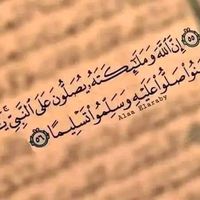 ٥٥ إِنَّ ٱللَّهَ وَمَلَٰٓئِكَتَهُۥ يُصَلُّونَ عَلَى ٱلنَّبِىِّ
صَلُّوا۟ عَلَيْهِ وَسَلِّمُوا۟ تَسْلِيمًا ٥٦
Alaa Elaraby